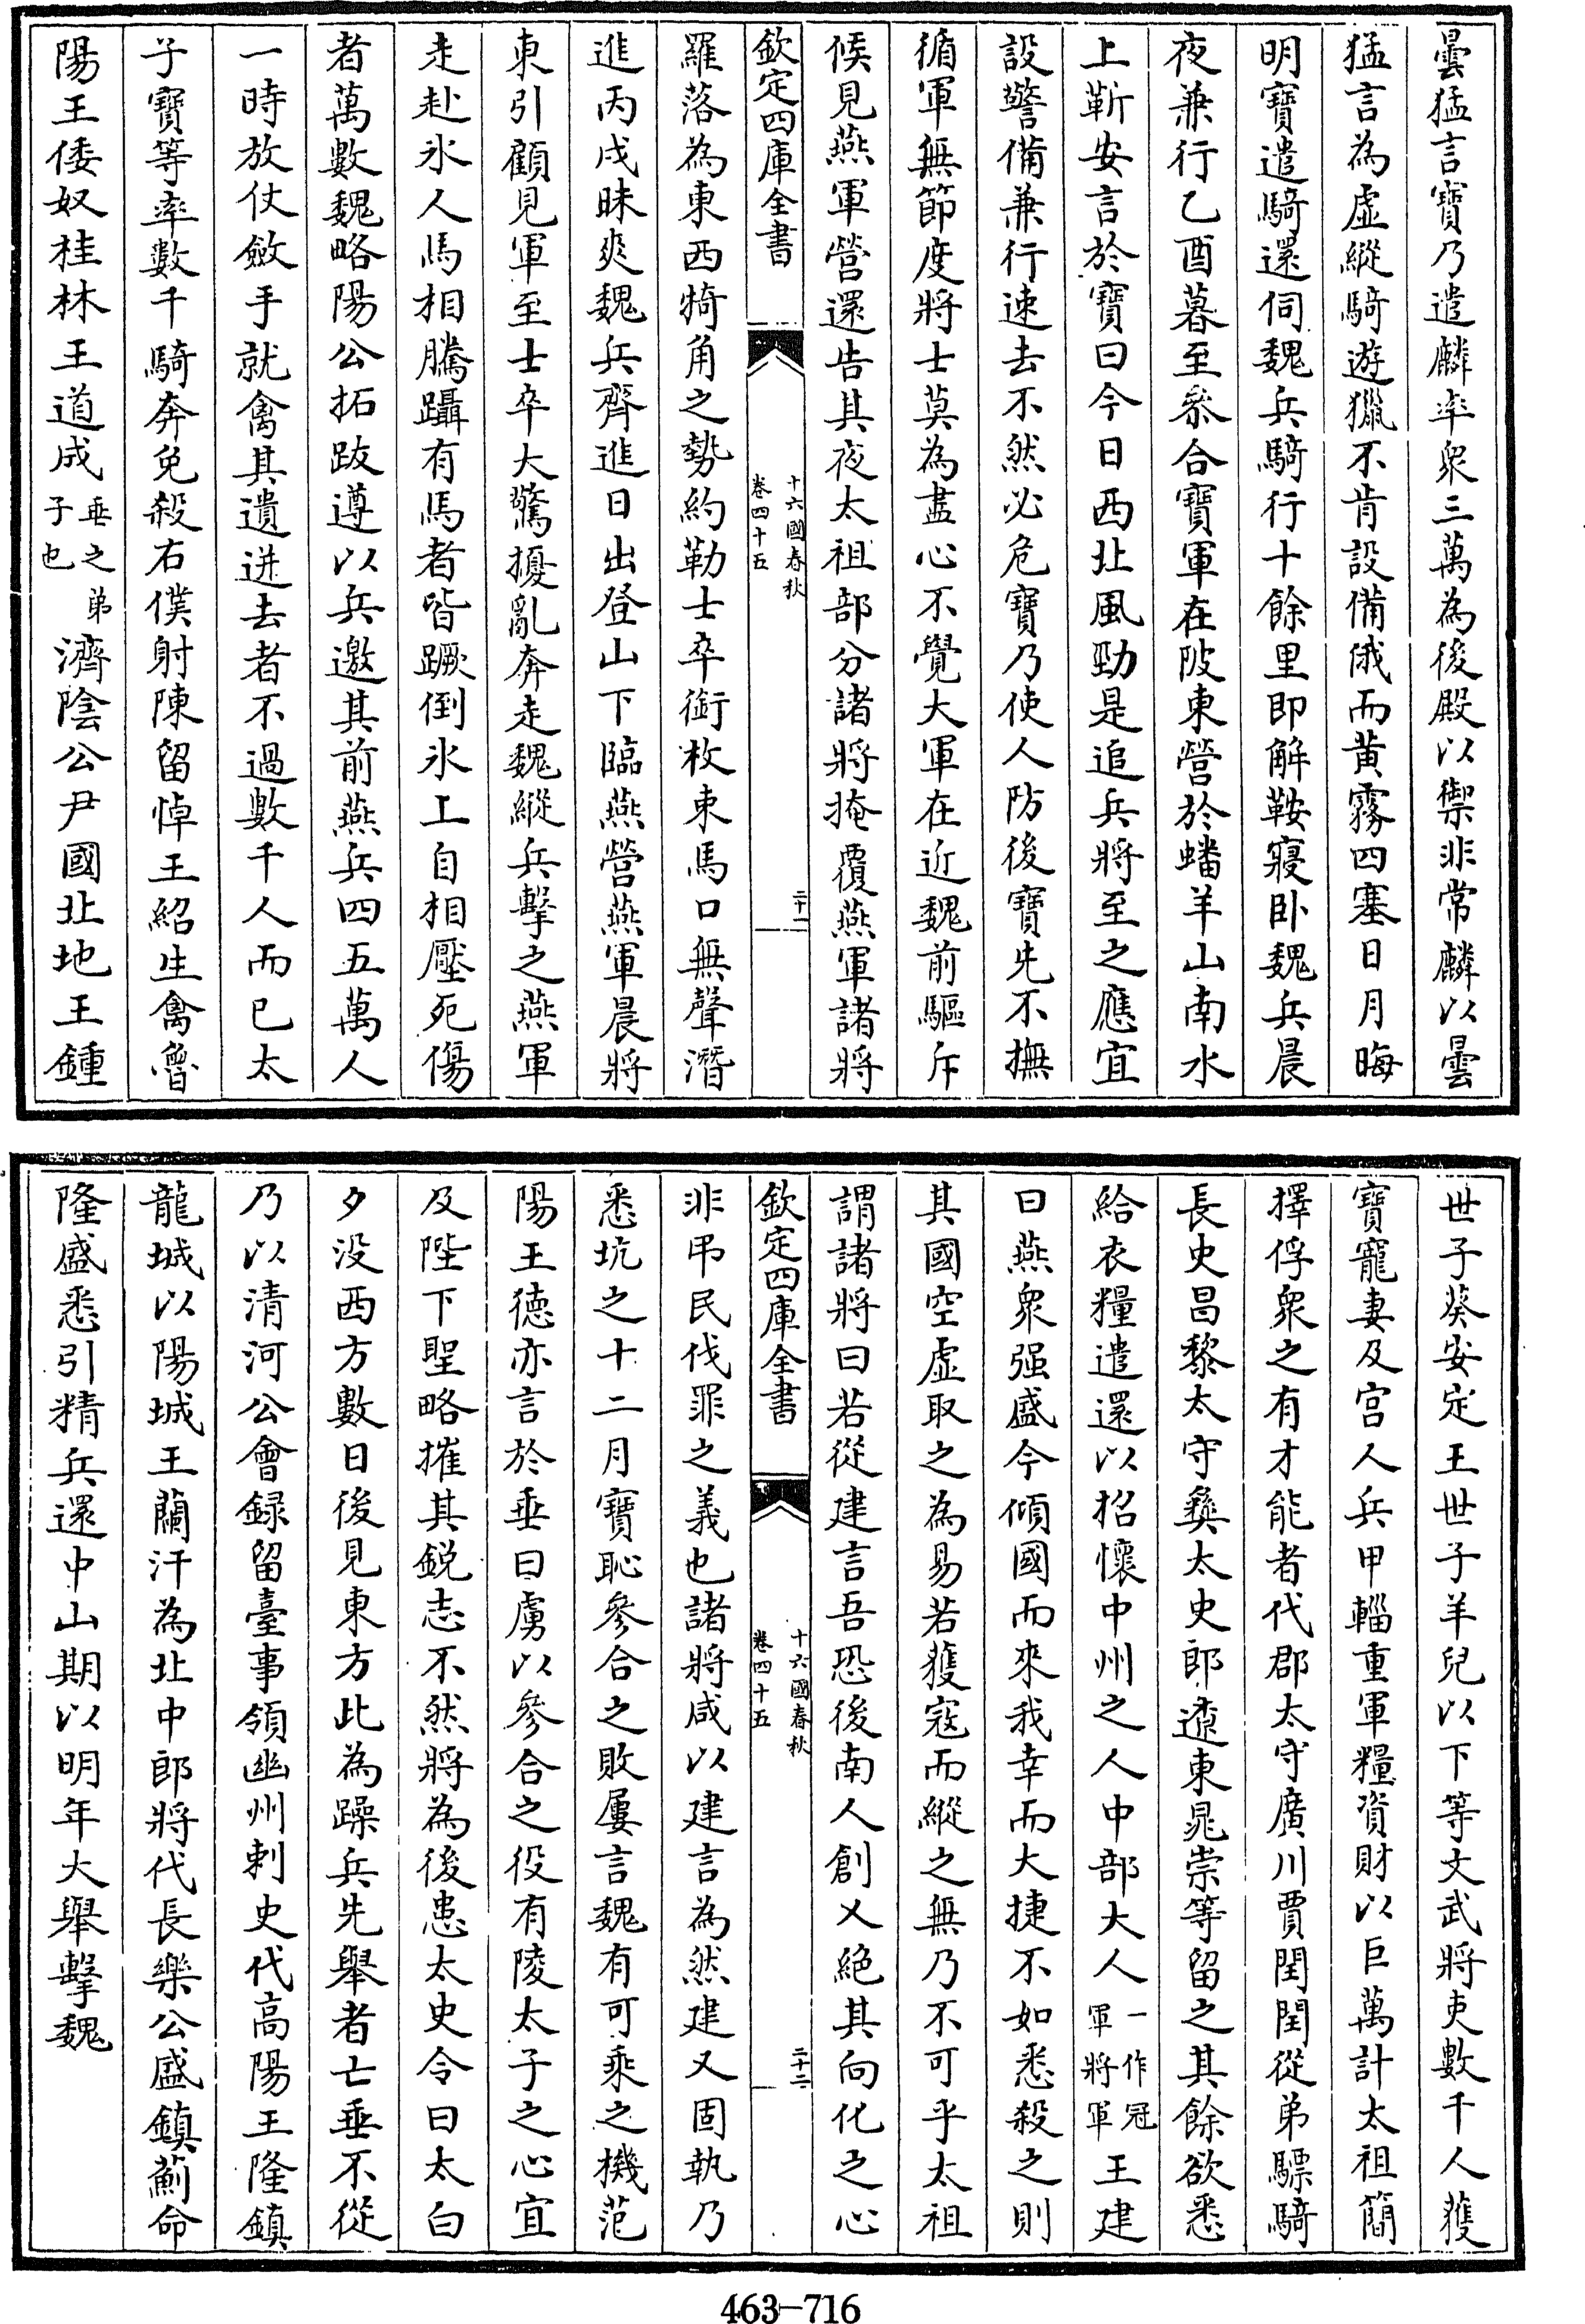 曇猛言寶乃遣麟率衆三萬為後殿以禦非常麟以曇
猛言為虛縱騎遊獵不肯設備俄而黃霧四塞日月晦
明寶遣騎還伺魏兵騎行十餘里即解鞍寢卧魏兵晨
夜兼行乙酉暮至叅合寶軍在陂東營於蟠羊山南水
上靳安言於寶曰今日西北風勁是追兵將至之應宜
設警備兼行速去不然必危寶乃使人防後寶先不撫
循軍無節度將士莫為盡心不覺大軍在近魏前驅斥
候見燕軍營還告其夜太祖部分諸將掩覆燕軍諸將
欽定四庫全書
十六國春秋
卷四十五
二十一
羅落為東西犄角之勢約勒士卒銜枚束馬口無聲潛
進丙戌昧爽魏兵齊進日出登山下臨燕營燕軍晨將
東引顧見軍至士卒大驚擾亂奔走魏縱兵擊之燕軍
走赴水人馬相騰躡有馬者皆蹶倒冰上自相壓死傷
者萬數魏略陽公拓跋遵以兵邀其前燕兵四五萬人
一時放仗斂手就禽其遺迸去者不過數千人而已太
子寶等率數千騎奔免殺右僕射陳留悼王紹生禽魯
陽王倭奴桂林王道成垂之弟子也濟陰公尹國北地王鍾
世子葵安定王世子羊兒以下等文武將吏數千人獲
寶寵妻及宫人兵甲輜重軍糧資財以巨萬計太祖簡
擇俘衆之有才能者代郡太守廣川賈閏閏從弟驃騎
長史昌黎太守彝太史郎遼東晁崇等留之其餘欲悉
給衣糧遣還以招懷中州之人中部大人一作冠軍將軍王建
曰燕衆强盛今傾國而來我幸而大捷不如悉殺之則
其國空虛取之為易若獲寇而縱之無乃不可乎太祖
謂諸將曰若從建言吾恐後南人創乂絶其向化之心
欽定四庫全書
十六國春秋
卷四十五
二十二
非弔民伐罪之義也諸將咸以建言為然建又固執乃
悉坑之十二月寶恥參合之敗屢言魏有可乘之機范
陽王德亦言於垂曰虜以參合之役有陵太子之心宜
及陛下聖略摧其鋭志不然將為後患太史令曰太白
夕没西方數日後見東方此為躁兵先舉者亡垂不從
乃以清河公會録留臺事領幽州刺史代高陽王隆鎮
龍城以陽城王蘭汗為北中郎將代長樂公盛鎮薊命
隆盛悉引精兵還中山期以明年大舉擊魏
463-716